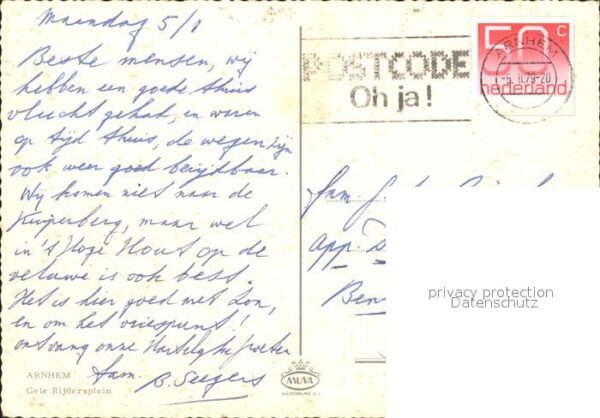 Maandag 5/1
Beste mensen, wij
hebben een goede thuis
vlucht gehad, en waren
op tijd thuis, de wegen zijn
ook weer goed berijdbaar.
Wij komen niet naar de
Kuiperberg, maar wel
in 't Hoge Hout op de
veluwe is ook best.
Het is hier goed met Zon,
en om het vriespunt!
ontvang onze Hartelijke groeten
fam. B. Seegers
ARNHEM
Gele Rijdersplein
POSTCODE
Oh ja!
ARNHEM
50 c
nederland
fam.
App.
Ben
privacy protection
Datenschutz
MUVA
VALKENBURG